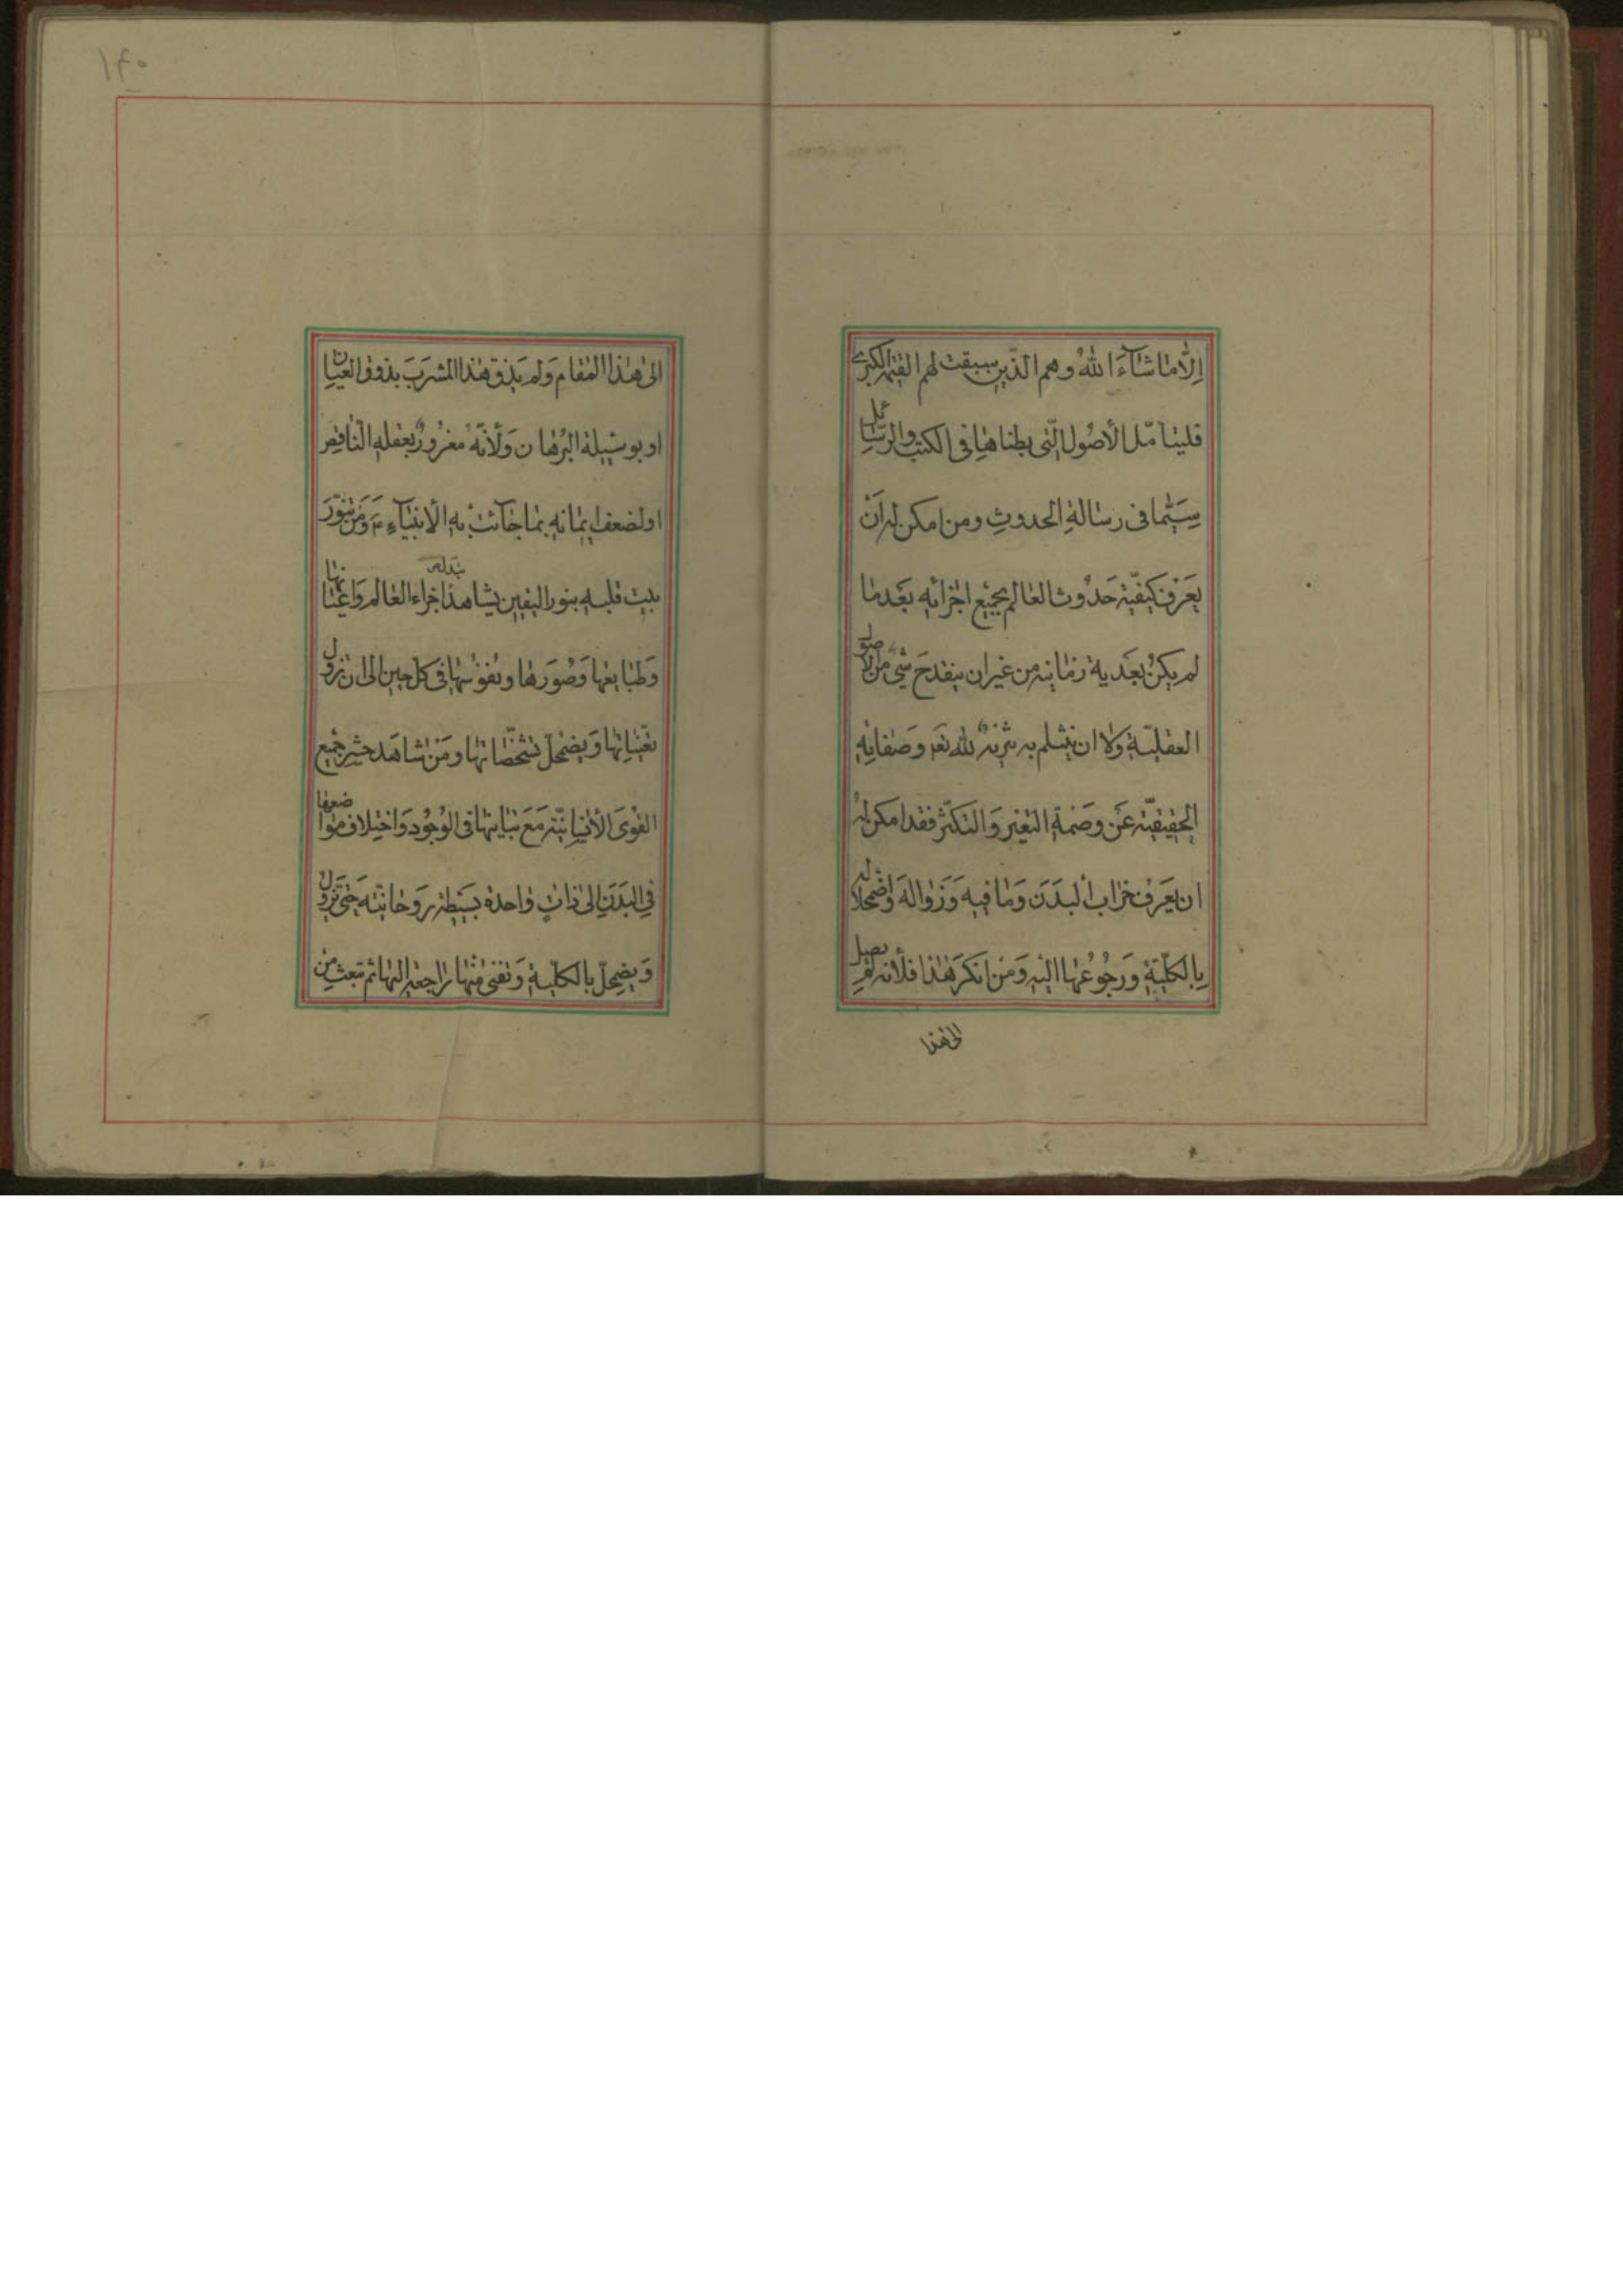 اِلّا مَا شَآءَ اللهُ وهم الّذين سبقت لهم القيٰمة الكبرى
فليتأمّل الأصُول الّتى بطناها فى الكتب والرّسائل
سِيَّما فى رسالةِ الحدوثِ ومن امكن له اَن
يعَرف كيفيّة حَدُوث العٰالم بجميع اجزائه بعَدما
لم يكنُ بعَدية زمانية من غير ان ينقدحَ شئ من الاصول
العقليّة ولا ان ينثلم به تنزيهُ لله تعَـ وصَفاتِه
الحقيقيّة عَن وصَمة التغيّر وَالتكثّر فقد امكن لهُ
ان يعَرف خرٰاب البَدَن وَمٰا فيه وَزوٰاله وَاضمحلاله
بِالكلّيّةِ وَرجُوعُها اليه وَمَن انكرَ هٰذا فلأنه لم يصل
الى هٰذا
١٤٥
الى هٰذا المقٰام وَلم يَذق هٰذا المشرَبَ بذوق العيٰان
او بوسَيلة البُرهٰان وَلأنّهُ مغرُورٌ بعَقله النّاقصِ
او لضعف ايمٰانه بمٰا جٰائت به الأنبيٰآءِ ع وَمَن تنوّرَ
بيت قلبه بنور اليقين يشاهد تبدل اجزاء العٰالم وَاعيٰانها
وَطبٰايعهٰا وَصُوَرهٰا ونُفوُسهٰا فى كل حين الى ان تزول
تعَيّناتهٰا وَيضمحلّ تشخّصٰاتهٰا ومَن شٰاهَد حشر جميع
القُوَى الأنسٰانيّة مَعَ تبٰاينهٰا فى الوُجُود وَاختِلاف موٰاضعهٰا
فِى البَدَنِ الى ذٰاتٍ وٰاحدة بسَيطة روَحٰانيّة حَتى تزول
وَيضمحلّ بالكلّيّة وَتفنى منهٰا رٰاجعة اليهٰا ثم تبعَث مِن